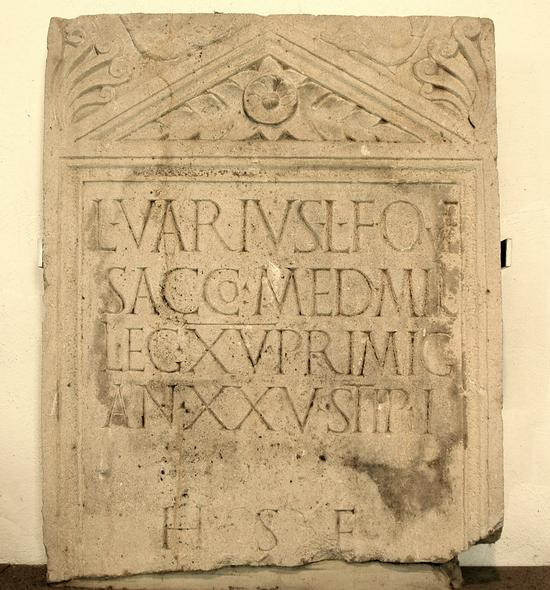 L·VARIVS·L·F·OVF
SACCO·MED·MIL
LEG·XV·PRIMIG
AN·XXV·STIP·I
H S E